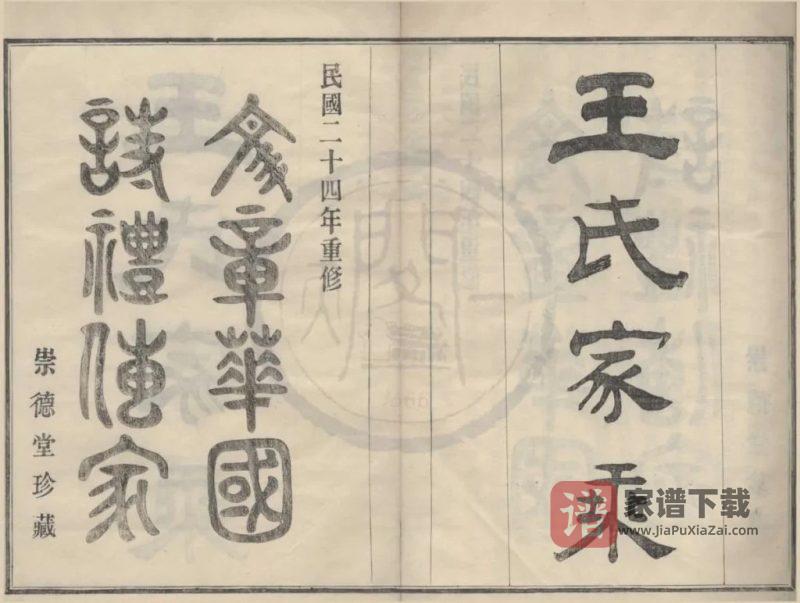 王氏家乘
民國二十四年重修
文章華國
詩禮傳家
崇德堂珍藏
谱 家谱下载
www.JiaPuXiaZai.com